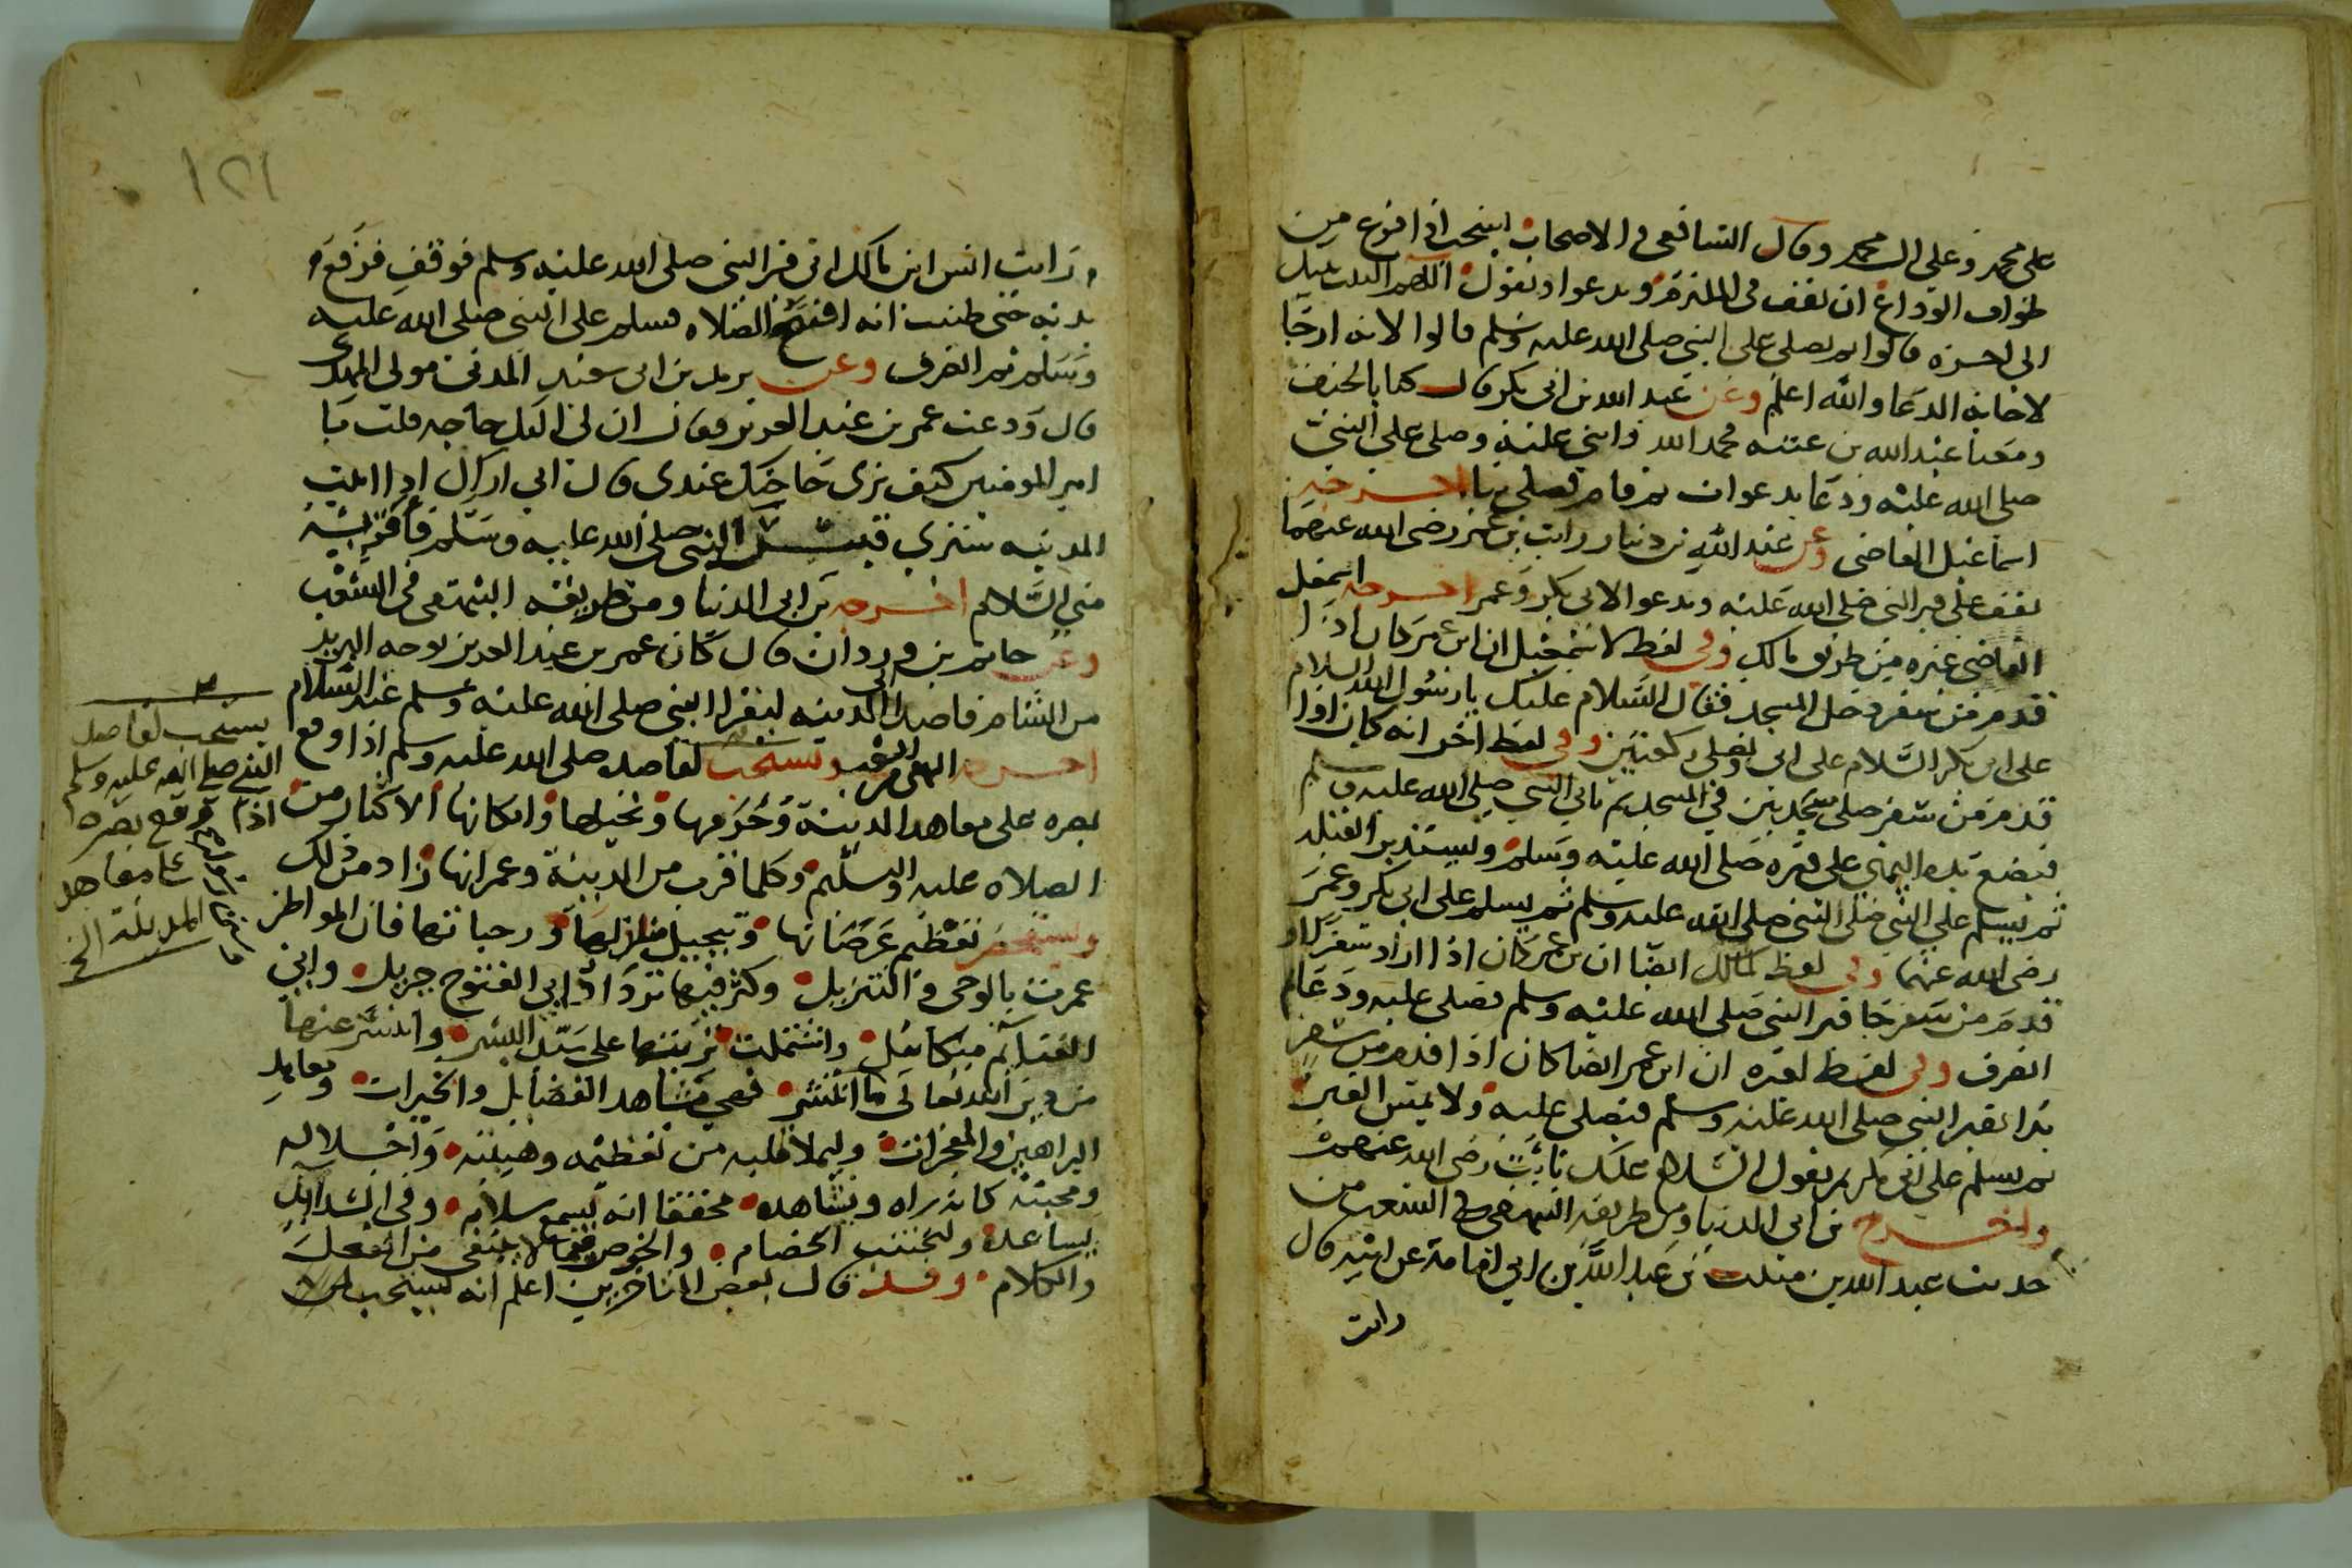 على محمد وعلى ال محمد وقال الشافعى والاصحاب يستحب اذا فرغ من
طواف الوداع ان يقف فى الملتزم ويدعوا ويقول اللهم البيت بيتك
الى اخره قالوا ثم يصلى على النبى صلى الله عليه وسلم قالوا لانه ارجا
لاجابة الدعا والله اعلم وعن عبد الله بن ابى بكر قال كنا بالخيف
ومعنا عبد الله بن عتبه فحمد الله واثنى عليه وصلى على النبى
صلى الله عليه ودعا بدعوات ثم قام فصلى بنا اخرجه
اسماعيل القاضى وعن عبد الله بن دينار رايت بن عمر رضى الله عنهما
يقف على قبر النبى صلى الله عليه ويدعو لابى بكر وعمر اخرجه اسمعيل
القاضى وغيره من طريق مالك وفى لفظ لاسمعيل ان ابن عمر كان اذا
قدم من سفر دخل المسجد فقال السلام عليك يا رسول الله السلام
على ابى بكر السلام على ابى ويصلى ركعتين وفى لفظ اخر انه كان اذا
قدم من سفر صلى سجدتين فى المسجد ثم ياتى النبى صلى الله عليه وسلم
فيضع يده اليمنى على قبره صلى الله عليه وسلم ويستدبر القبله
ثم يسلم على النبى صلى الله عليه وسلم ثم يسلم على ابى بكر وعمر
رضى الله عنهما وفى لفظ لمالك ايضا ان بن عمر كان اذا اراد سفرا او
قدم من سفر جا قبر النبى صلى الله عليه وسلم فصلى عليه ودعا ثم
انصرف وفى لفظ لغيره ان ابن عمر ايضا كان اذا قدم من سفر
بدا بقبر النبى صلى الله عليه وسلم فيصلى عليه ولا يمس القبر
ثم يسلم على ابى بكر ثم يقول السلام عليك يا ابت رضى الله عنهم
واخرج بن ابى الدنيا ومن طريقه البيهقى فى الشعب من
حديث عبد الله بن منيب بن عبد الله بن ابى امامة عن ابيه قال
رايت
١٢١
رايت انس ابن مالك اتى قبر النبى صلى الله عليه وسلم فوقف فرفع
يديه حتى ظننت انه افتتح الصلاه فسلم على النبى صلى الله عليه
وسلم ثم انصرف وعن يزيد بن ابى سعيد المدنى مولى المهدى
قال ودعت عمر بن عبد العزيز فقال ان لى اليك حاجه قلت يا
امير المومنين كيف ترى حاجتك عندى قال انى اراك اذا اتيت
المدينه سترى قبر النبى صلى الله عليه وسلم فاقرئه
منى السلام اخرجه بن ابى الدنيا ومن طريقه البيهقى فى الشعب
وعن حاتم بن وردان قال كان عمر بن عبد العزيز يوجه البريد
من الشام قاصدا الى المدينه ليقرا النبى صلى الله عليه وسلم عنه السلام
اخرجه البيهقى فى الشعب ويستحب لقاصده صلى الله عليه وسلم اذا وقع
بصره على معاهد المدينة وحرمها ونخيلها واماكنها الاكثار من
الصلاه عليه والتسليم وكلما قرب من المدينة وعمرانها زاد من ذلك
ويستحضر تعظيم عرصاتها وتبجيل منازلها ورحباتها فان المواطن
عمرت بالوحى والتنزيل وكثر فيها ترداد ابى الفتوح جبريل وابى
الغنايم ميكائيل واشتملت تربتها على سيد البشر وانتشر عنها
من دين الله تعالى ما انتشر فهى مشاهد الفضايل والخيرات ومعاهد
البراهين والمعجزات وليملا قلبه من تعظيمه وهيبته واجلاله
ومحبته كانه يراه ويشاهده محققا انه يسمع سلامه وفى الشدايد
يساعده وليجتنب الخصام والخوض فيما لا ينبغى من الفعل
والكلام وقد قال بعض المتاخرين اعلم انه يستحب
يستحب لقاصد
النبى صلى الله عليه وسلم
اذا وقع بصره
على معاهد
المدينة الخ